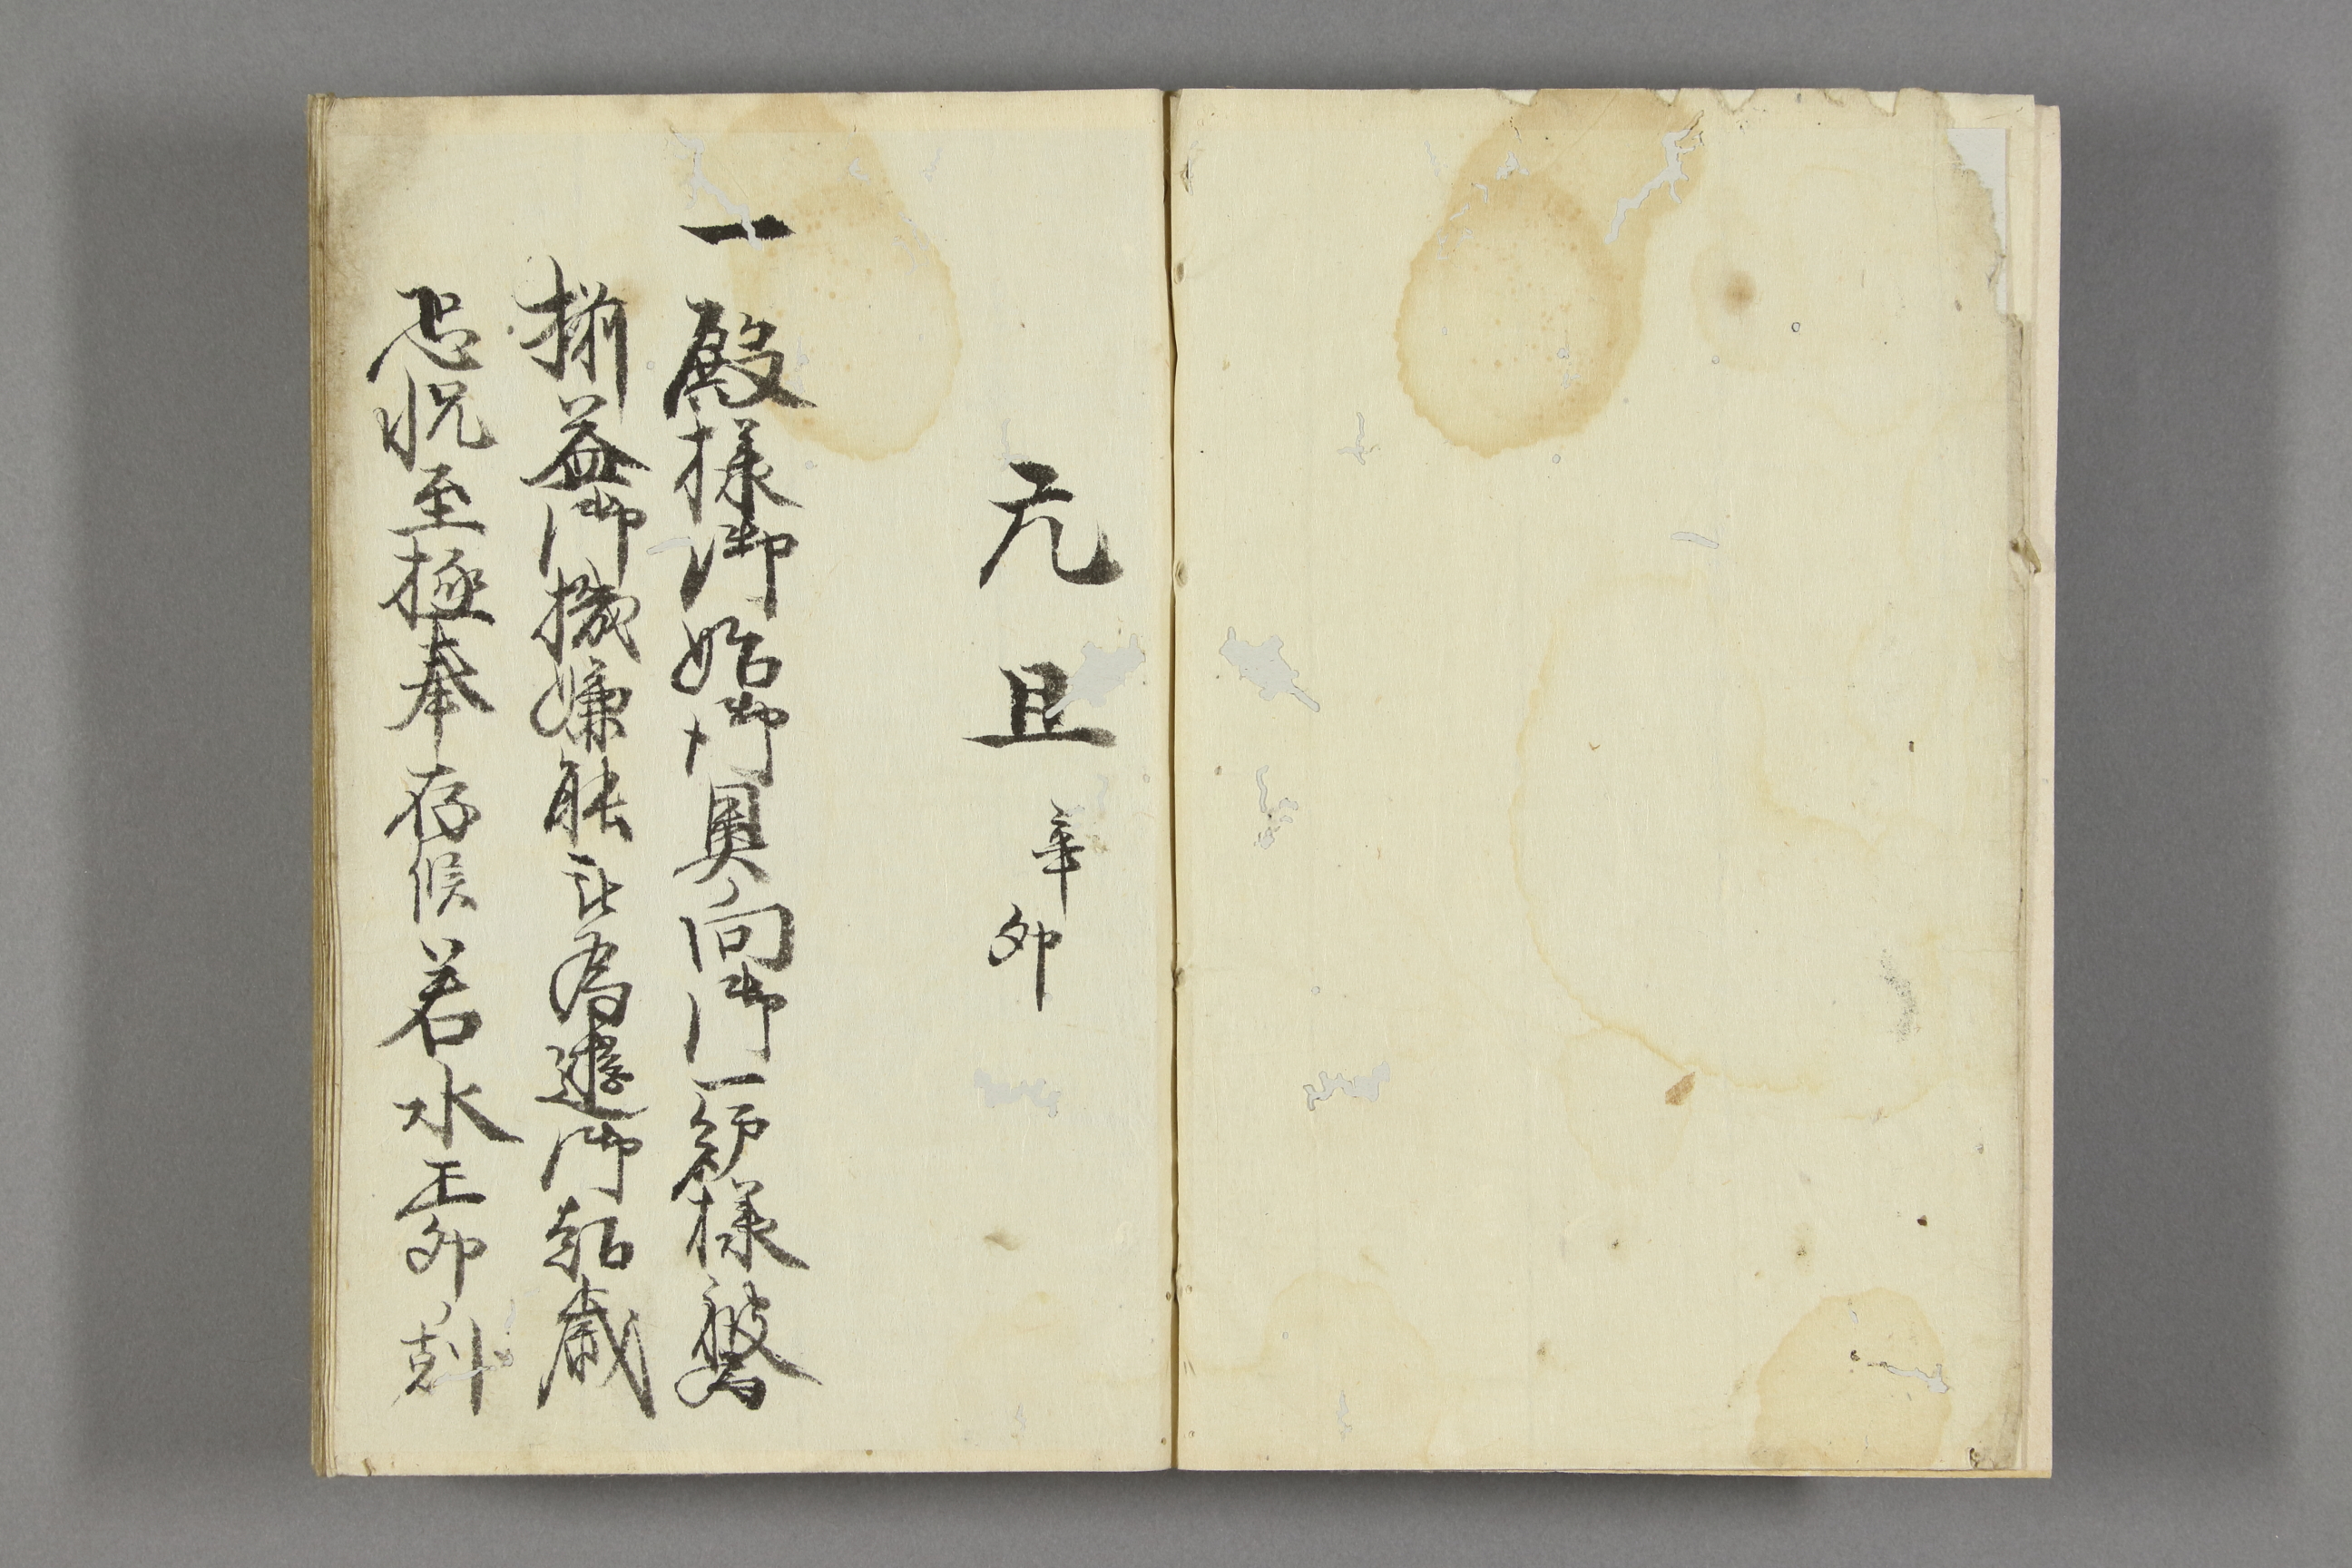 元旦 辛卯
一殿様御始御奥向御一統様被為
揃益御機嫌能被為遊御超歳
恐悦至極奉存候若水正卯ノ刻